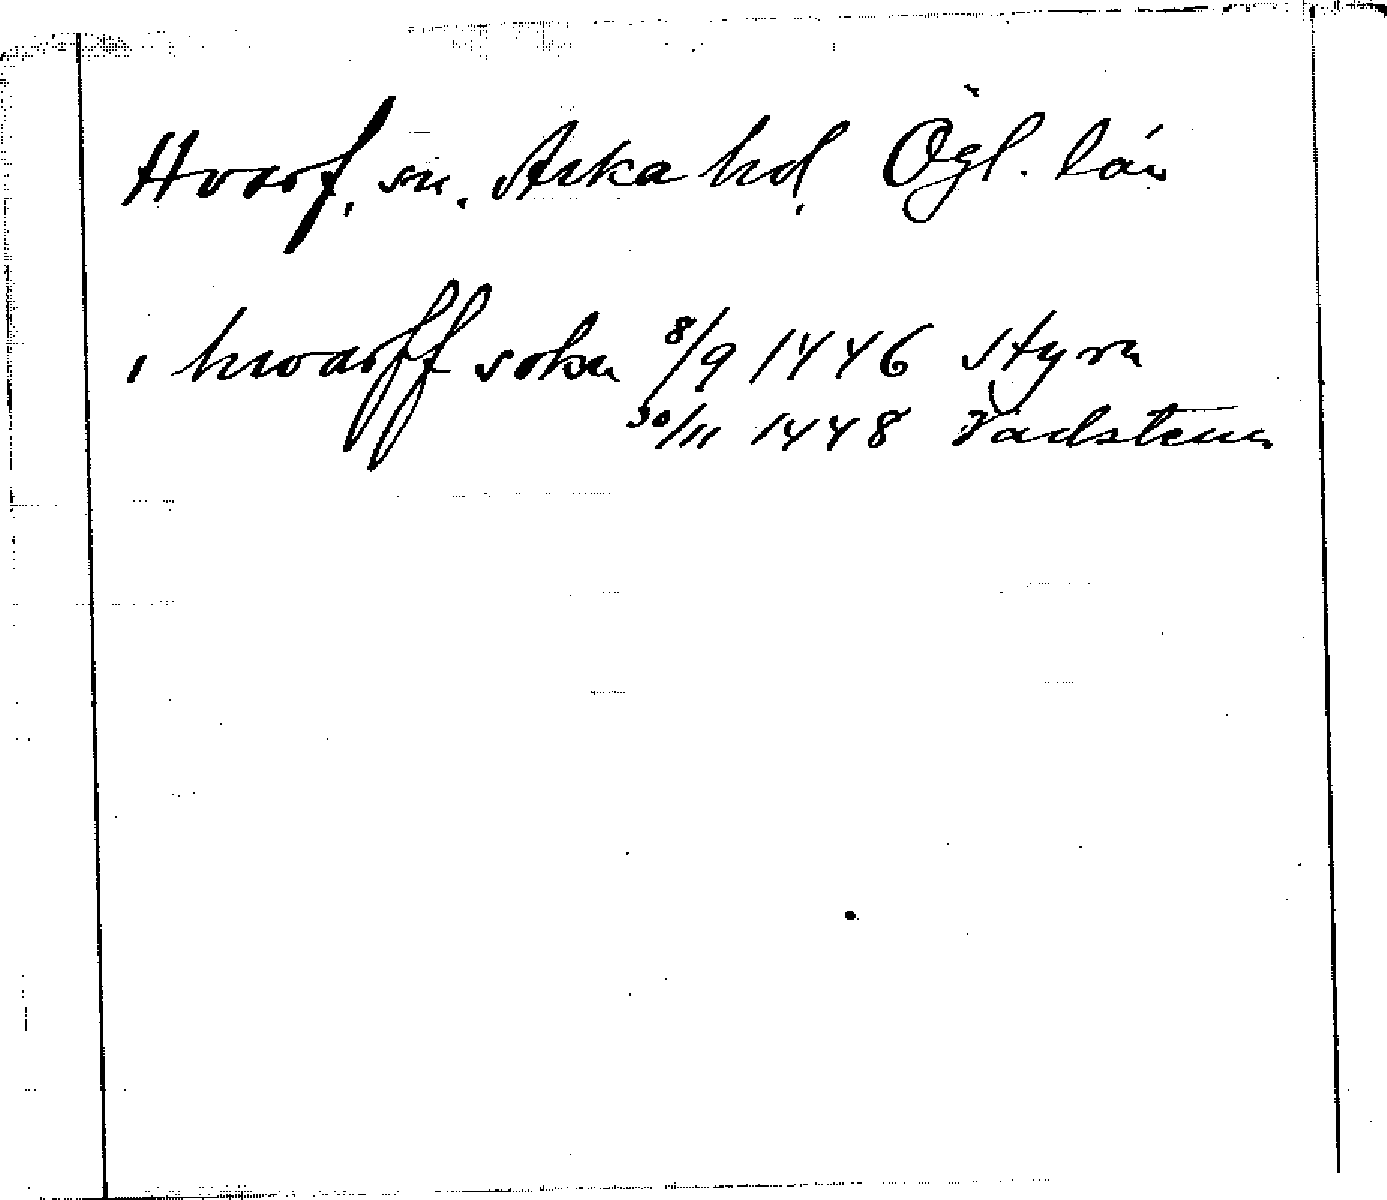 Hvarf, sn. Aska hd, Ögl. län
i hwarff sokn 8/9 1446 Styra
30/11 1448 Vadstena